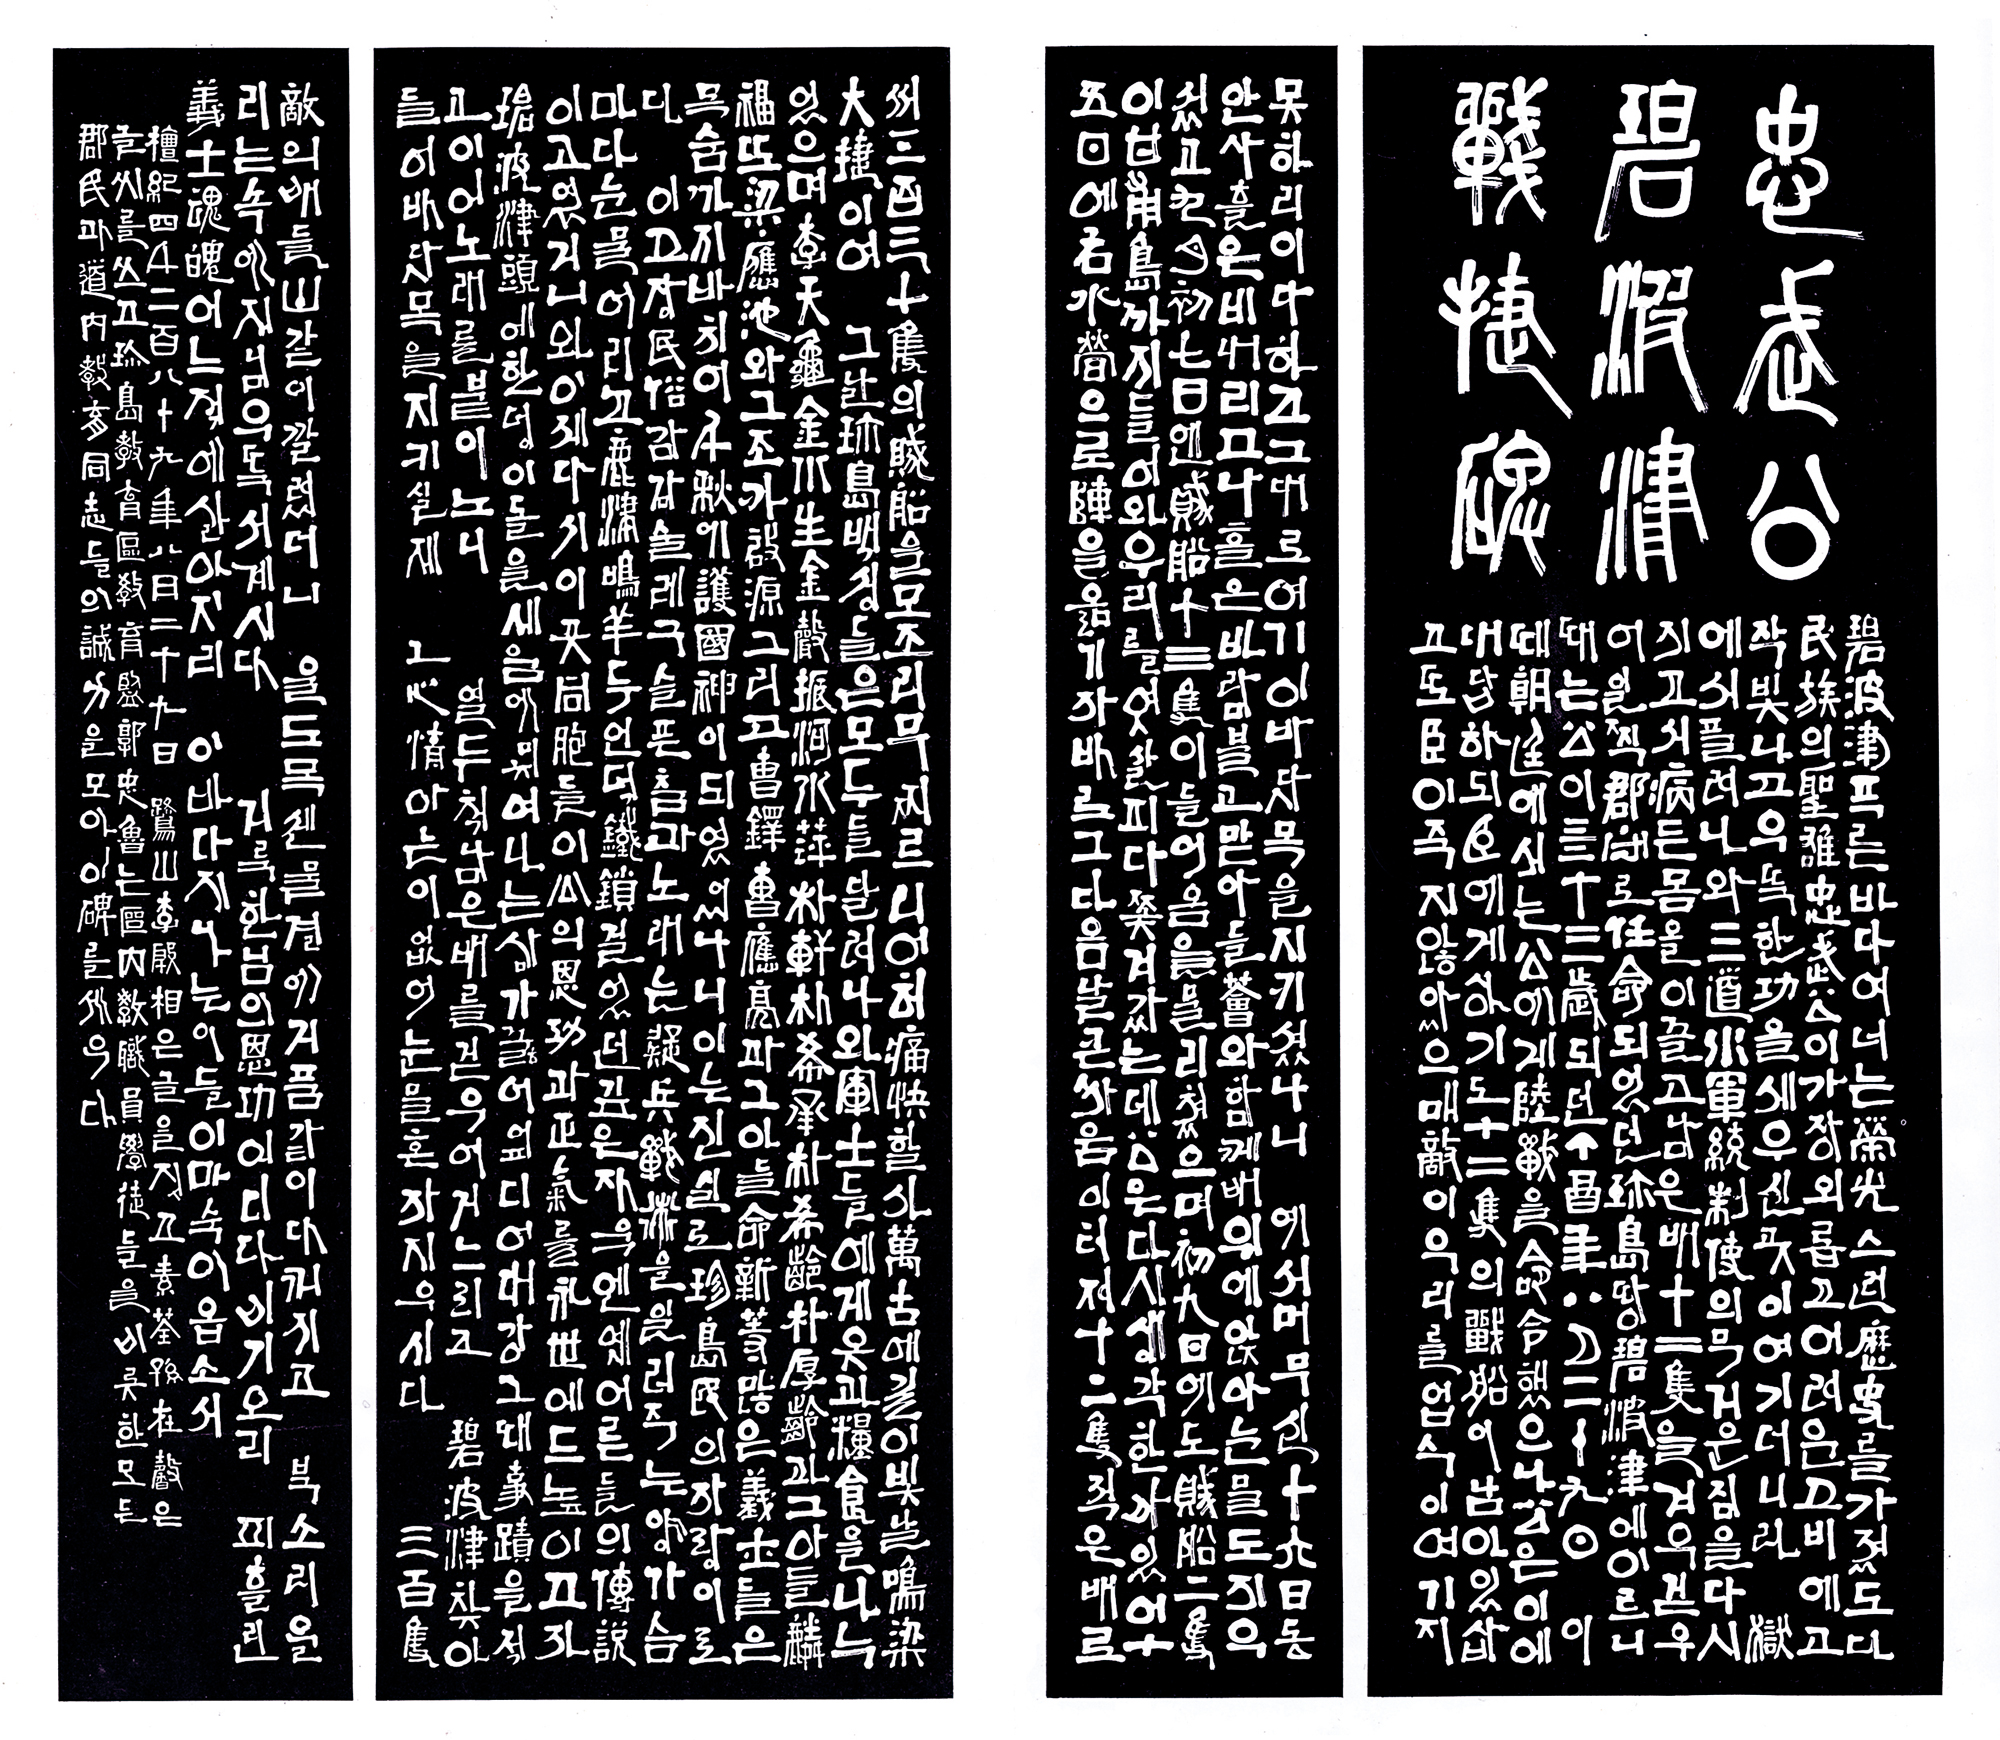 忠武公
碧波津
戰捷碑
碧波津푸른바다여너는榮光스런歷史를가졌도다
民族의聖雄忠武公이가장외롭고어려운고비에고
작빛나고우뚝한功을세우신곳이여기더니라 獄
에서풀려나와三道水軍統制使의무거운짐을다시
지고서病든몸을이끌고남은배十二隻을겨우걷우
어일찍郡守로任命되었던珍島땅碧波津에이르니
때는公이五十三歲되던丁酉年八月二十九日 이
때朝廷에서는公에게陸戰을命令했으나公은이에
대답하되臣에게상기도十二隻의戰船이남아있삽
고또臣이죽지않았으매敵이우리를업수이여기지
못하리이다하고그대로여기이바닷목을지키셨나니 예서머무신十六日동
안사흘은비내리고나흘은바람불고맏아들薈와함께배위에앉아눈물도지우
셨고九月初七日엔賊船十三隻이들어옴을물리쳤으며初九日에도賊船二隻
이甘甫島까지들어와우리를엿살피다쫓겨갔는데公은다시생각한바있어十
五日에右水營으로陣을옮기자바르그다음날큰싸움이터져十二隻적은배로
써三百三十隻의賊船을모조리무찌르니어허痛快할사萬古에길이빛날鳴梁
大捷이여 그날珍島백성들은모두들달려나와軍士들에게옷과糧食을나누
었으며李天龜金水生金聲振河水萍朴軒朴希承朴希齡朴厚齡과그아들麟
福또梁應池와그조카啟源그리고曺鐸曺應亮과그아들命新等많은義士들은
목숨까지바치어千秋에護國神이되었나니이는진실로珍島民의자랑이로
다 이고장民俗강강술레구슬픈춤과노래는疑兵戰術을일러주는양가슴
마다눈물어리고鹿津鳴羊두언덕鐵鎖걸었던깊은자욱엔옛어른들의傳說
이고였거니와이제다시이곳同胞들이公의恩功과正氣를永世에드높이고자
碧波津頭에한덩이돌을세움에미쳐여나는삼가꿇어엎디어대강그때事蹟을적
고이어노래를붙이노니 열두척남은배를걷우어거느리고 碧波津찾아
들어바닷목을지키실제 그心情아는이없어눈물혼자지우시다 三百隻
敵의배들山같이깔렸더니 울도목센물결에거품같이다꺼지고 북소리울
리는속에저님우뚝서계시다 거룩한님의恩功이디다비기오리 피흘린
義士魂魄어느적에살아지리 이바다지나는이들이마숙이옵소서
檀紀四千二百八十九年八月二十九日 鷺山李殷相은글을짓고素荃孫在馨은
글씨를쓰고珍島敎育區敎育監郭忠魯는區內敎職員學徒들을비롯한모든
郡民과道內敎育同志들의誠力을모아이碑를세우다